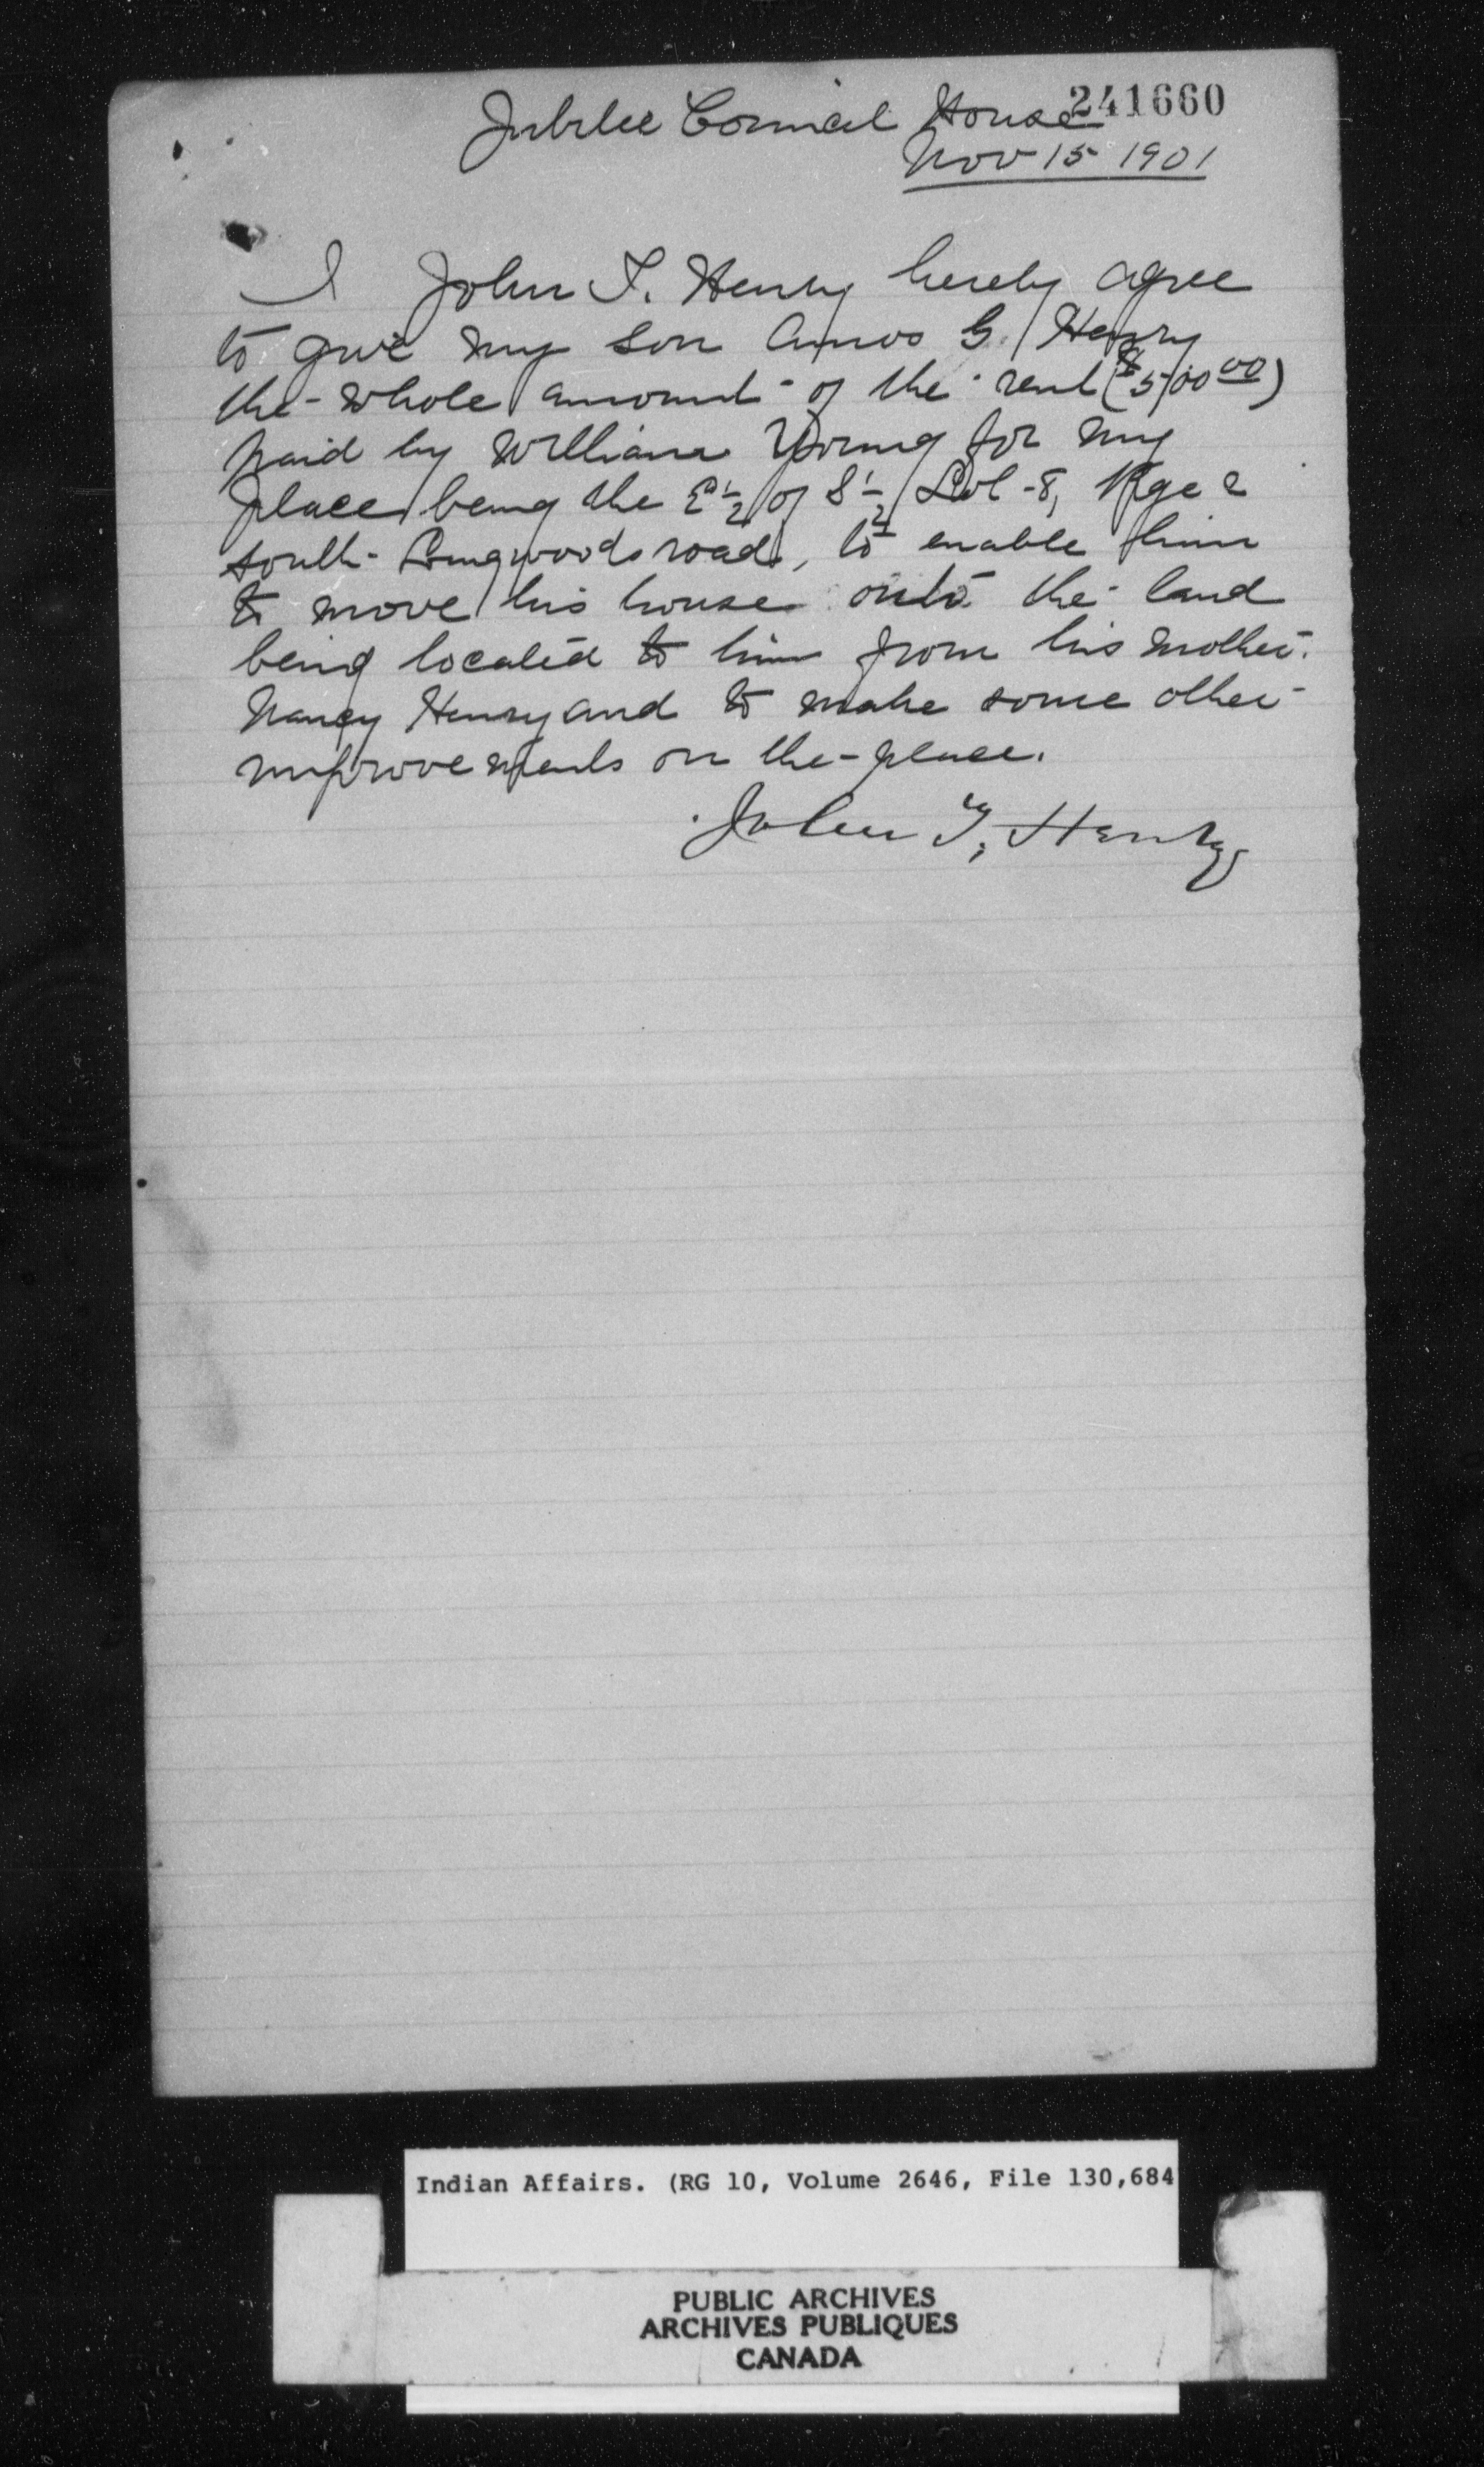 241660
Jubilee Council House
Nov 15 1901
I John T. Henry hereby agree
to give my son Amos G. Henry
the whole amount of the rent ($500 00)
paid by William Young for my
place being the E 1/2 of S 1/2 Lot 8, Rge 2
south Longwoods road, to enable him
to move his house onto the land
being located to him from his mother
Nancy Henry and to make some other
improvements on the place.
John T. Henry
Indian Affairs. (RG 10, Volume 2646, File 130,684
PUBLIC ARCHIVES
ARCHIVES PUBLIQUES
CANADA